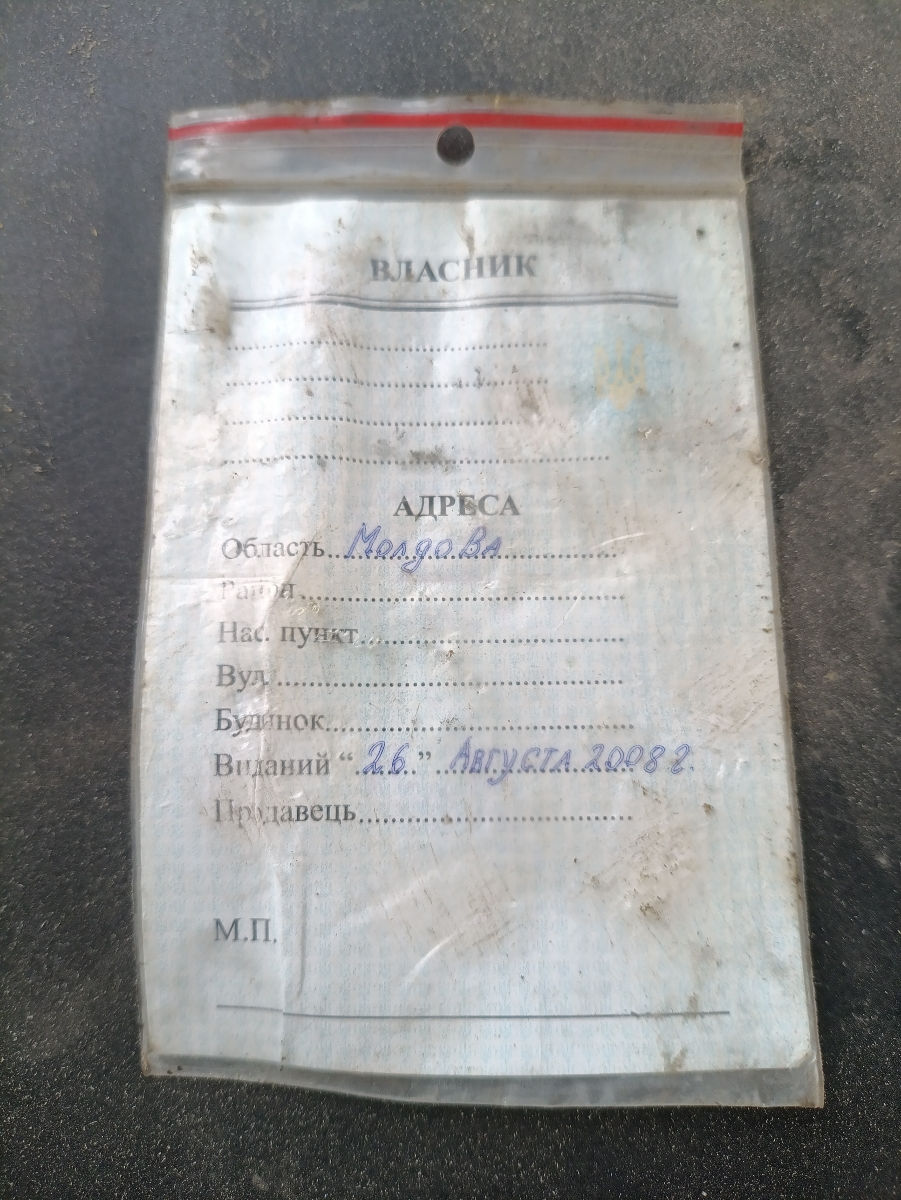 ВЛАСНИК
АДРЕСА
Область Молдова
Район
Нас. пункт
Вул.
Будинок
Виданий “26” Августа 2008 г.
Продавець
М.П.